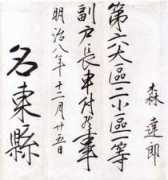 森 達郎
第六大區二小區等
副戸長申付候事
明治八年十二月廿五日
名東縣